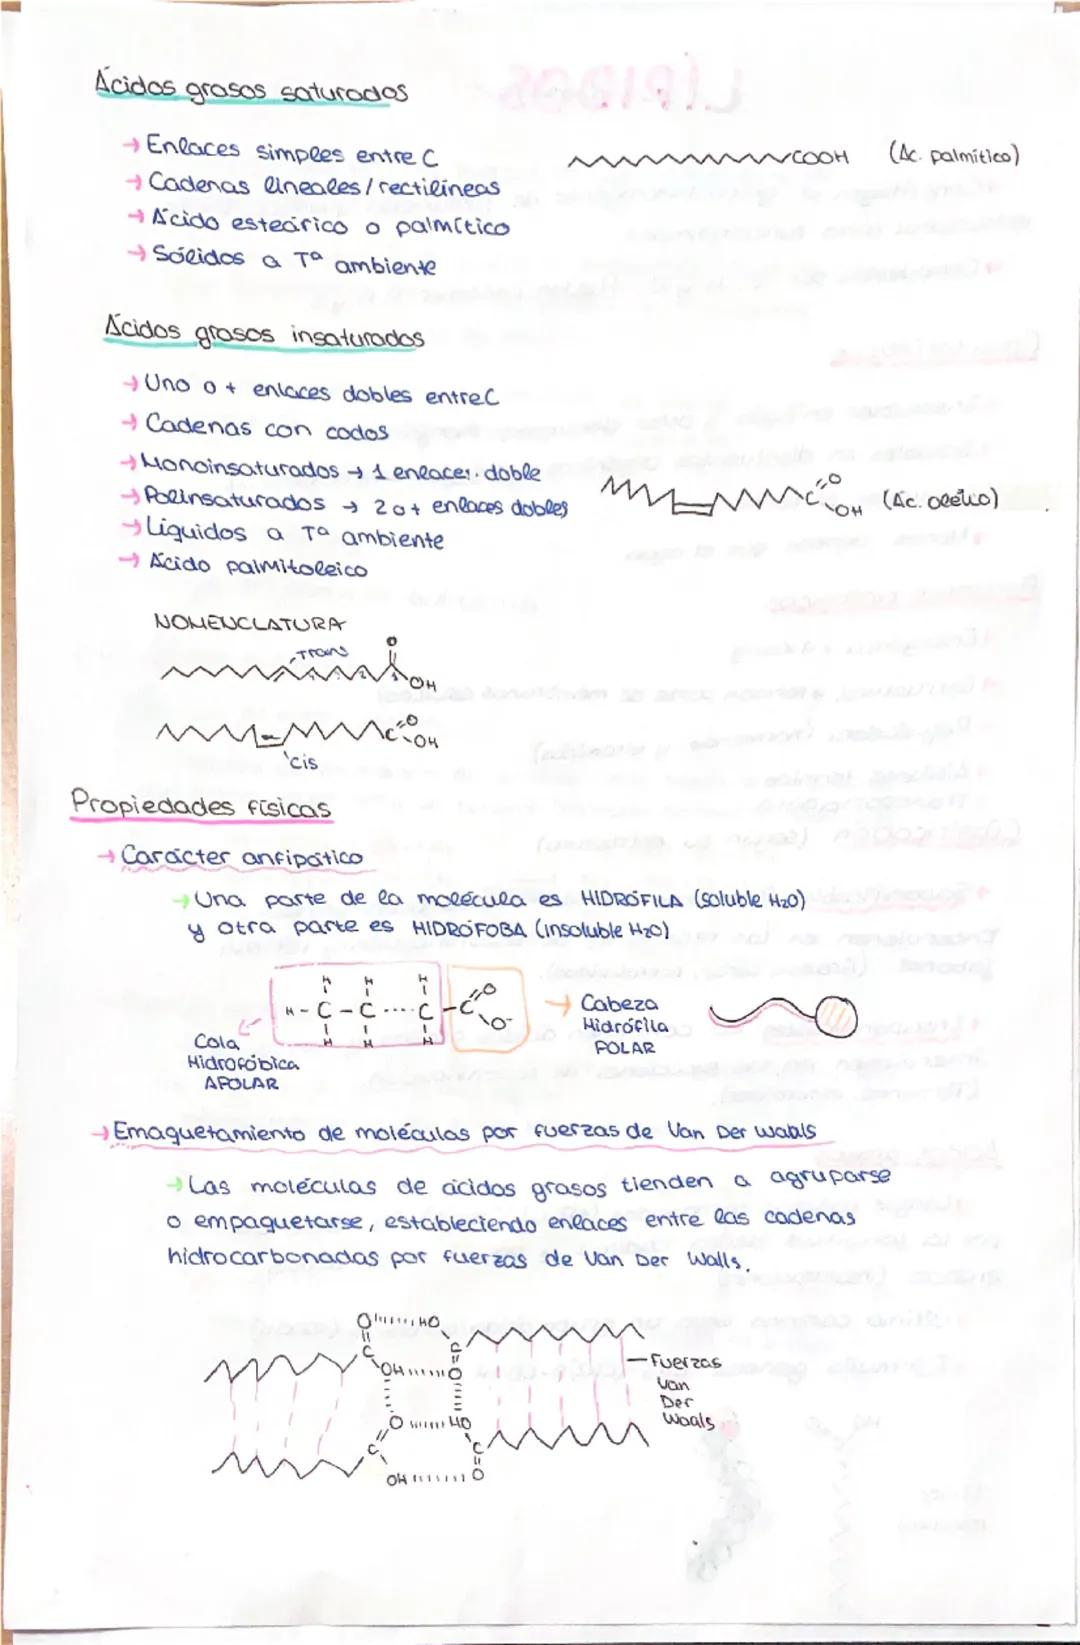 Ácidos grasos saturados
→ Enlaces simples entre C
COOH (Ác. palmítico)
→ Cadenas lineales / rectilíneas
→ Ácido esteárico o palmítico
→ Sólidos a Tª ambiente
Ácidos grasos insaturados
→ Uno o + enlaces dobles entre C
→ Cadenas con codos
→ Monoinsaturados → 1 enlace doble
→ Poliinsaturados → 2 o + enlaces dobles
C O OH (Ác. oleico)
→ Líquidos a Tª ambiente
→ Ácido palmitoleico
NOMENCLATURA
Trans
O
OH
C O OH
cis
Propiedades físicas
→ Carácter anfipático
→ Una parte de la molécula es HIDRÓFILA (soluble H2O)
y otra parte es HIDRÓFOBA (insoluble H2O)
H H H
H - C - C ---- C - C O O-
H H H
Cola
Hidrofóbica
APOLAR
→ Cabeza
Hidrófila
POLAR
→ Emaquetamiento de moléculas por fuerzas de Van Der Waals
→ Las moléculas de ácidos grasos tienden a agruparse
o empaquetarse, estableciendo enlaces entre las cadenas
hidrocarbonadas por fuerzas de Van Der Walls.
O HO
C C
OH O
Fuerzas
Van
Der
Waals
O HO
C C
OH O